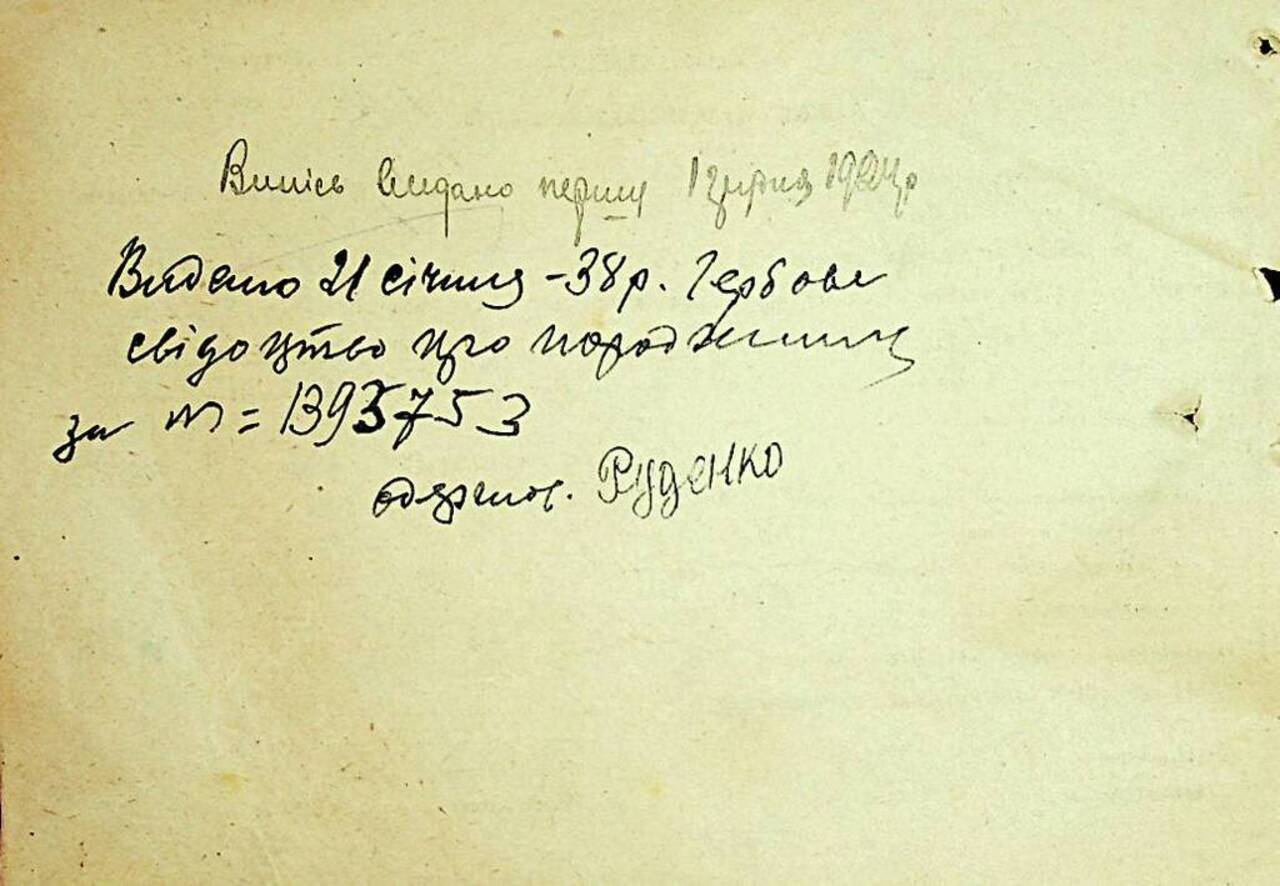 Випись видано першу 1 грудня 1924 р
Видано 21 січня -38 р. Гербове
свідоцтво про народження
за № = 1395753
одержав. Руденко